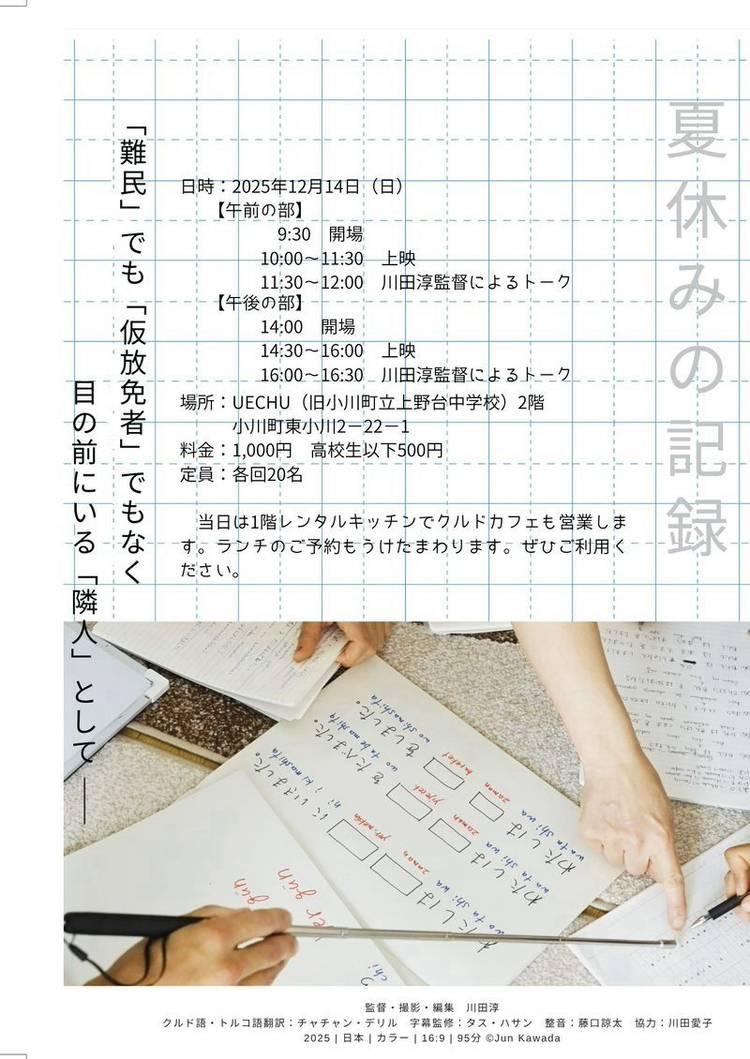 夏休みの記録
「難民」でも「仮放免者」でもなく
目の前にいる「隣人」として──
日時：2025年12月14日（日）
【午前の部】
9:30　開場
10:00～11:30　上映
11:30～12:00　川田淳監督によるトーク
【午後の部】
14:00　開場
14:30～16:00　上映
16:00～16:30　川田淳監督によるトーク
場所：UECHU（旧小川町立上野台中学校）2階
小川町東小川2－22－1
料金：1,000円　高校生以下500円
定員：各回20名
当日は1階レンタルキッチンでクルドカフェも営業しま
す。ランチのご予約もうけたまわります。ぜひご利用く
ださい。
わたしは
wa ta shi wa
zaman
hereket
をしました。
wo shimashita
わたしは
wa ta shi wa
zaman
yiyecek
をたべました。
wo ta be mashita
わたしは
wa ta shi wa
zaman
にいきました。
ni i ki mashita
gün
監督・撮影・編集　川田淳
クルド語・トルコ語翻訳：チャチャン・デリル　字幕監修：タス・ハサン　整音：藤口諒太　協力：川田愛子
2025 | 日本 | カラー | 16:9 | 95分 ©Jun Kawada